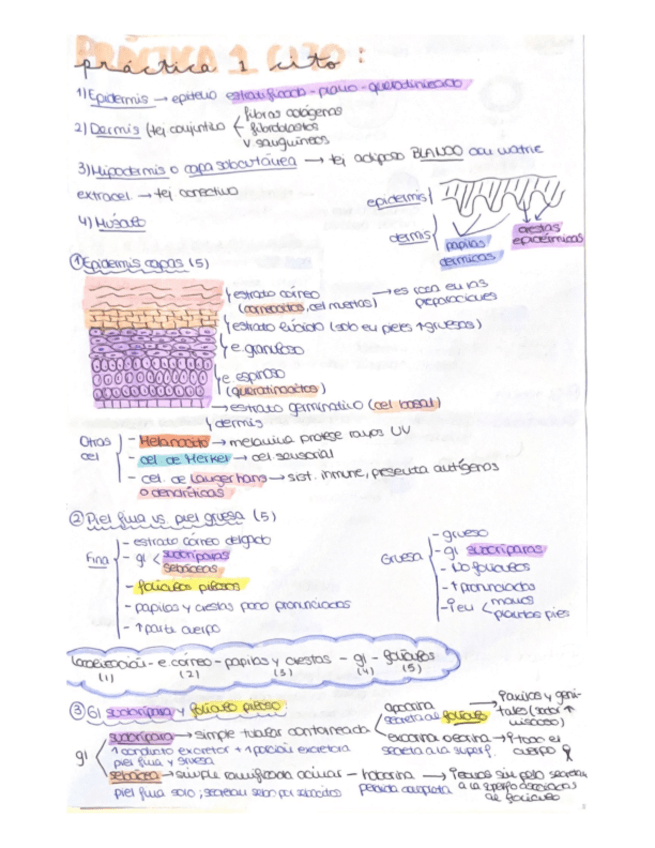 PRÁCTICA 1 CITO:
práctica 1 cito
1) Epidermis → epitelio estratificado - plano - queratinizado
2) Dermis (tej conjuntivo
fibras colágenas
fibroblastos
v. sanguíneos
3) Hipodermis o capa subcutánea → tej adiposo BLANCO con matriz
extracel → tej conectivo
4) Músculo
epidermis
dermis
papilas
dérmicas
crestas
epidérmicas
① Epidermis capas (5)
estrato córneo
(corneocitos, cel muertas)
→ es rosa en las
preparaciones
estrato lúcido (solo en pieles ↑ gruesas)
e. granuloso
e. espinoso
(queratinocitos)
→ estrato germinativo (cel basal)
dermis
Otras
cel
- Melanocito → melanina protege rayos UV
- cel. de Merkel → cel. sensorial
- cel. de Langerhans → sist. inmune, presenta antígenos
o dendríticas
② Piel fina vs. piel gruesa (5)
Fina
- estrato córneo delgado
- gl
sudoríparas
sebáceas
- folículos pilosos
- papilas y crestas poco pronunciadas
- ↑ parte cuerpo
Gruesa
- grueso
- gl sudoríparas
- No folículos
- ↑ pronunciadas
- en
manos
plantas pies
Localización - e. córneo - papilas y crestas - gl - folículos
(1) (2) (3) (4) (5)
③ Gl sudorípara y folículo piloso:
gl
sudorípara → simple tubular contorneada
1 conducto excretor + 1 porción excretora
piel fina y gruesa
apocrina
secreta al folículo
→ axilas y geni-
tales (sudor ↑
viscoso)
excrina o ecrina → todo el
secreta a la superf. cuerpo
sebácea → simple ramificada acinar - holocrina
piel fina solo; secretan sebo por sebocitos
pérdida completa
→ zonas sin pelo secretan
a la superf o conductos
de folículo